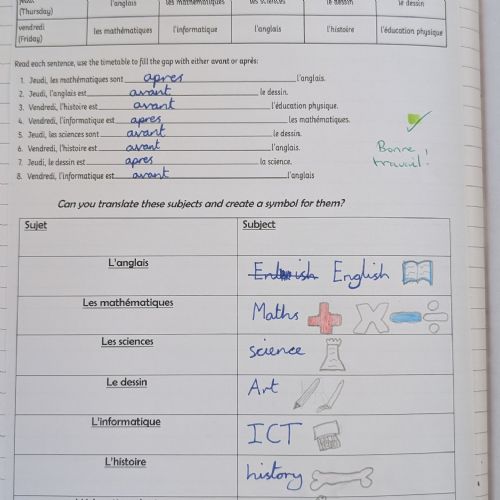 (Thursday) l'anglais les mathématiques les sciences le dessin le dessin
vendredi
(Friday) les mathématiques l'informatique l'anglais l'histoire l'éducation physique
Read each sentence, use the timetable to fill the gap with either avant or après:
1. Jeudi, les mathématiques sont apres l'anglais.
2. Jeudi, l'anglais est avant le dessin.
3. Vendredi, l'histoire est avant l'éducation physique.
4. Vendredi, l'informatique est apres les mathématiques.
5. Jeudi, les sciences sont avant le dessin.
6. Vendredi, l'histoire est avant l'anglais.
7. Jeudi, le dessin est apres la science.
8. Vendredi, l'informatique est avant l'anglais
Bonne
travail!
Can you translate these subjects and create a symbol for them?
Sujet Subject
L'anglais English
Les mathématiques Maths
Les sciences science
Le dessin Art
L'informatique ICT
L'histoire history